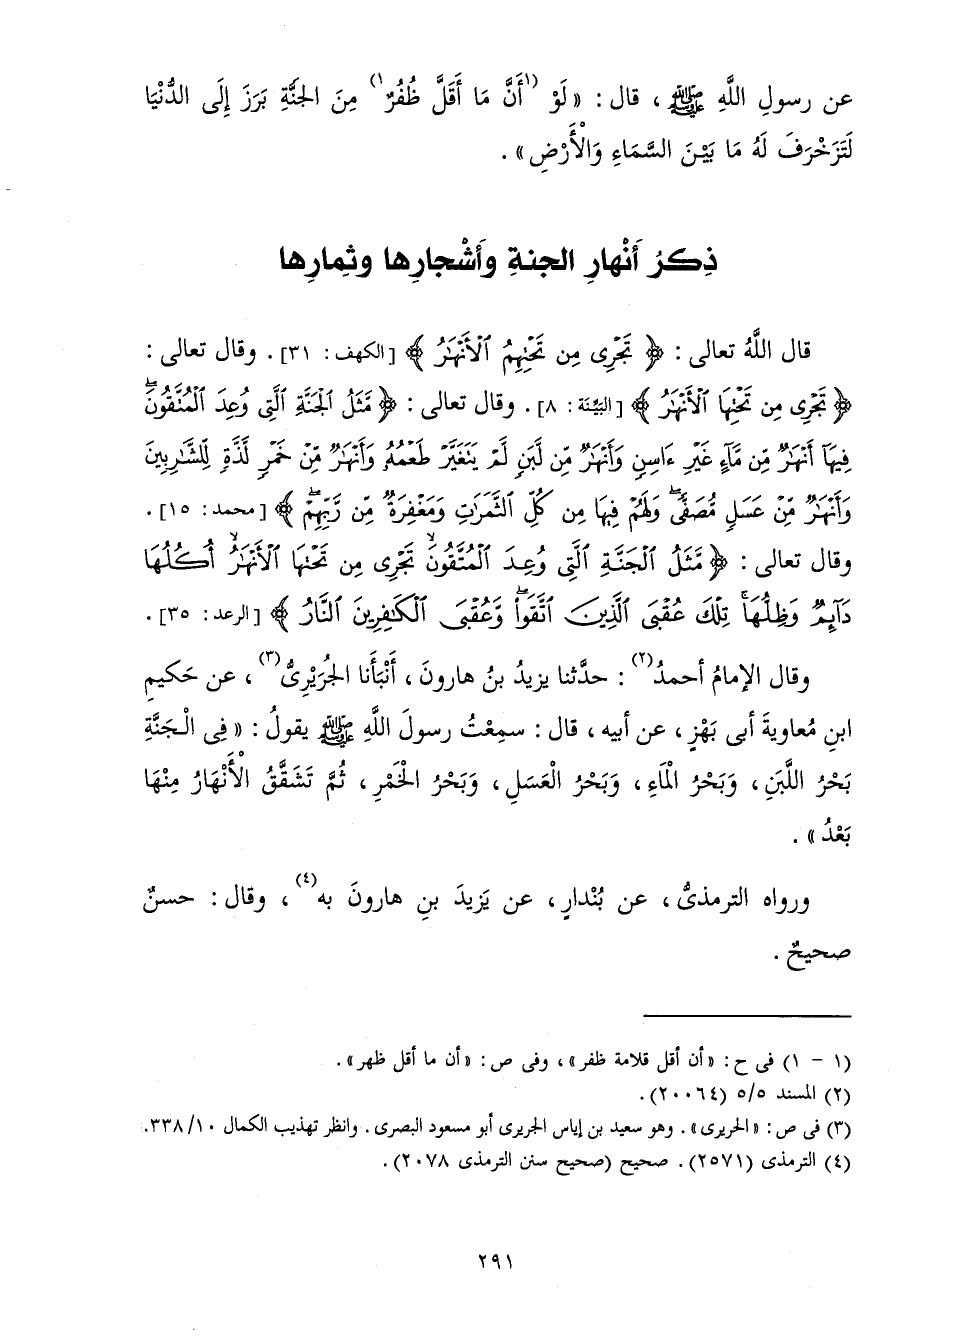 عن رسولِ اللَّهِ ﷺ ، قال : « لَوْ (١)أَنَّ مَا أَقَلَّ ظُفُرٌ(١) مِنَ الجَنَّةِ بَرَزَ إِلَى الدُّنْيَا
لَتَزَخْرَفَ لَهُ مَا بَيْنَ السَّمَاءِ وَالْأَرْضِ » .
ذِكرُ أَنْهارِ الجنةِ وأَشْجارِها وثِمارِها
قال اللَّهُ تعالى : ﴿ تَجْرِى مِن تَحْتِهِمُ ٱلْأَنْهَٰرُ ﴾ [الكهف : ٣١] . وقال تعالى :
﴿ تَجْرِى مِن تَحْتِهَا ٱلْأَنْهَٰرُ ﴾ [البيِّنة : ٨] . وقال تعالى : ﴿ مَّثَلُ ٱلْجَنَّةِ ٱلَّتِى وُعِدَ ٱلْمُتَّقُونَۖ
فِيهَآ أَنْهَٰرٌ مِّن مَّآءٍ غَيْرِ ءَاسِنٍ وَأَنْهَٰرٌ مِّن لَّبَنٍ لَّمْ يَتَغَيَّرْ طَعْمُهُۥ وَأَنْهَٰرٌ مِّنْ خَمْرٍ لَّذَّةٍ لِّلشَّٰرِبِينَ
وَأَنْهَٰرٌ مِّنْ عَسَلٍ مُّصَفًّىۖ وَلَهُمْ فِيهَا مِن كُلِّ ٱلثَّمَرَٰتِ وَمَغْفِرَةٌ مِّن رَّبِّهِمْۖ ﴾ [محمد : ١٥] .
وقال تعالى : ﴿ مَّثَلُ ٱلْجَنَّةِ ٱلَّتِى وُعِدَ ٱلْمُتَّقُونَۙ تَجْرِى مِن تَحْتِهَا ٱلْأَنْهَٰرُۙ أُكُلُهَا
دَآئِمٌ وَظِلُّهَاۚ تِلْكَ عُقْبَى ٱلَّذِينَ ٱتَّقَوا۟ۖ وَّعُقْبَى ٱلْكَٰفِرِينَ ٱلنَّارُ ﴾ [الرعد : ٣٥] .
وقال الإمامُ أحمدُ(٢) : حدَّثنا يزيدُ بنُ هارونَ ، أَنْبَأَنا الجُرَيْرِىُّ(٣) ، عن حَكيمِ
ابنِ مُعاويةَ أبى بَهْزٍ ، عن أبيه ، قال : سمِعْتُ رسولَ اللَّهِ ﷺ يقولُ : « فِى الْجَنَّةِ
بَحْرُ اللَّبَنِ ، وَبَحْرُ الْمَاءِ ، وَبَحْرُ الْعَسَلِ ، وَبَحْرُ الْخَمْرِ ، ثُمَّ تَشَقَّقُ الْأَنْهَارُ مِنْهَا
بَعْدُ » .
ورواه الترمذىُّ ، عن بُنْدارٍ ، عن يَزيدَ بنِ هارونَ به(٤) ، وقال : حسنٌ
صحيحٌ .
(١ - ١) فى ح : « أن أقل قلامة ظفر » ، وفى ص : « أن ما أقل ظهر » .
(٢) المسند ٥/٥ (٢٠٠٦٤) .
(٣) فى ص : « الحريرى » . وهو سعيد بن إياس الجريرى أبو مسعود البصرى . وانظر تهذيب الكمال ٣٣٨/١٠.
(٤) الترمذى (٢٥٧١) . صحيح (صحيح سنن الترمذى ٢٠٧٨) .
٢٩١